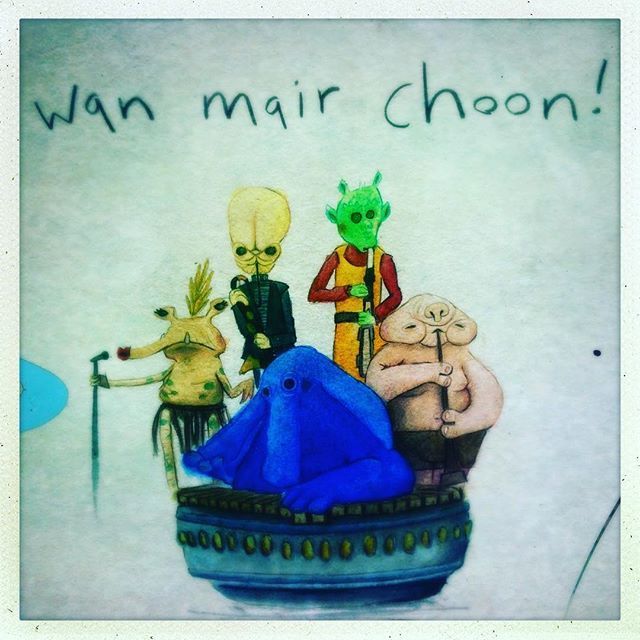 wan mair choon!